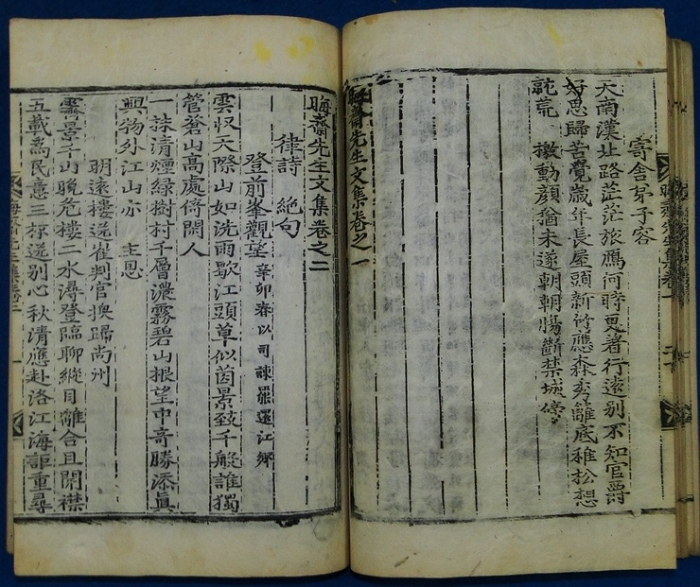 寄舍弟子容
天南漢北路茫茫旅鴈何時更著行遠別不知官爵
好思歸苦覺歲年長屋頭新竹應森秀籬底稚松想
荒 檄動顔猶未遂朝朝膓斷禁城傍
晦齋先生文集卷之一
晦齋先生文集卷之二
律詩 絶句
登前峯觀望 辛卯春以司諫罷還江鄉
雲収天際山如洗雨歇江頭草似茵景致千般誰獨
管蒼山高處倚閑人
一抹清煙緑樹村千層濃霧碧山根望中奇勝添眞
興物外江山亦 主恩
明遠樓送崔判官換歸尙州
霽景千山晩危樓二水潯登臨聊縱目離合且開襟
五載為民意三送別心秋清應赴洛江海詎重尋